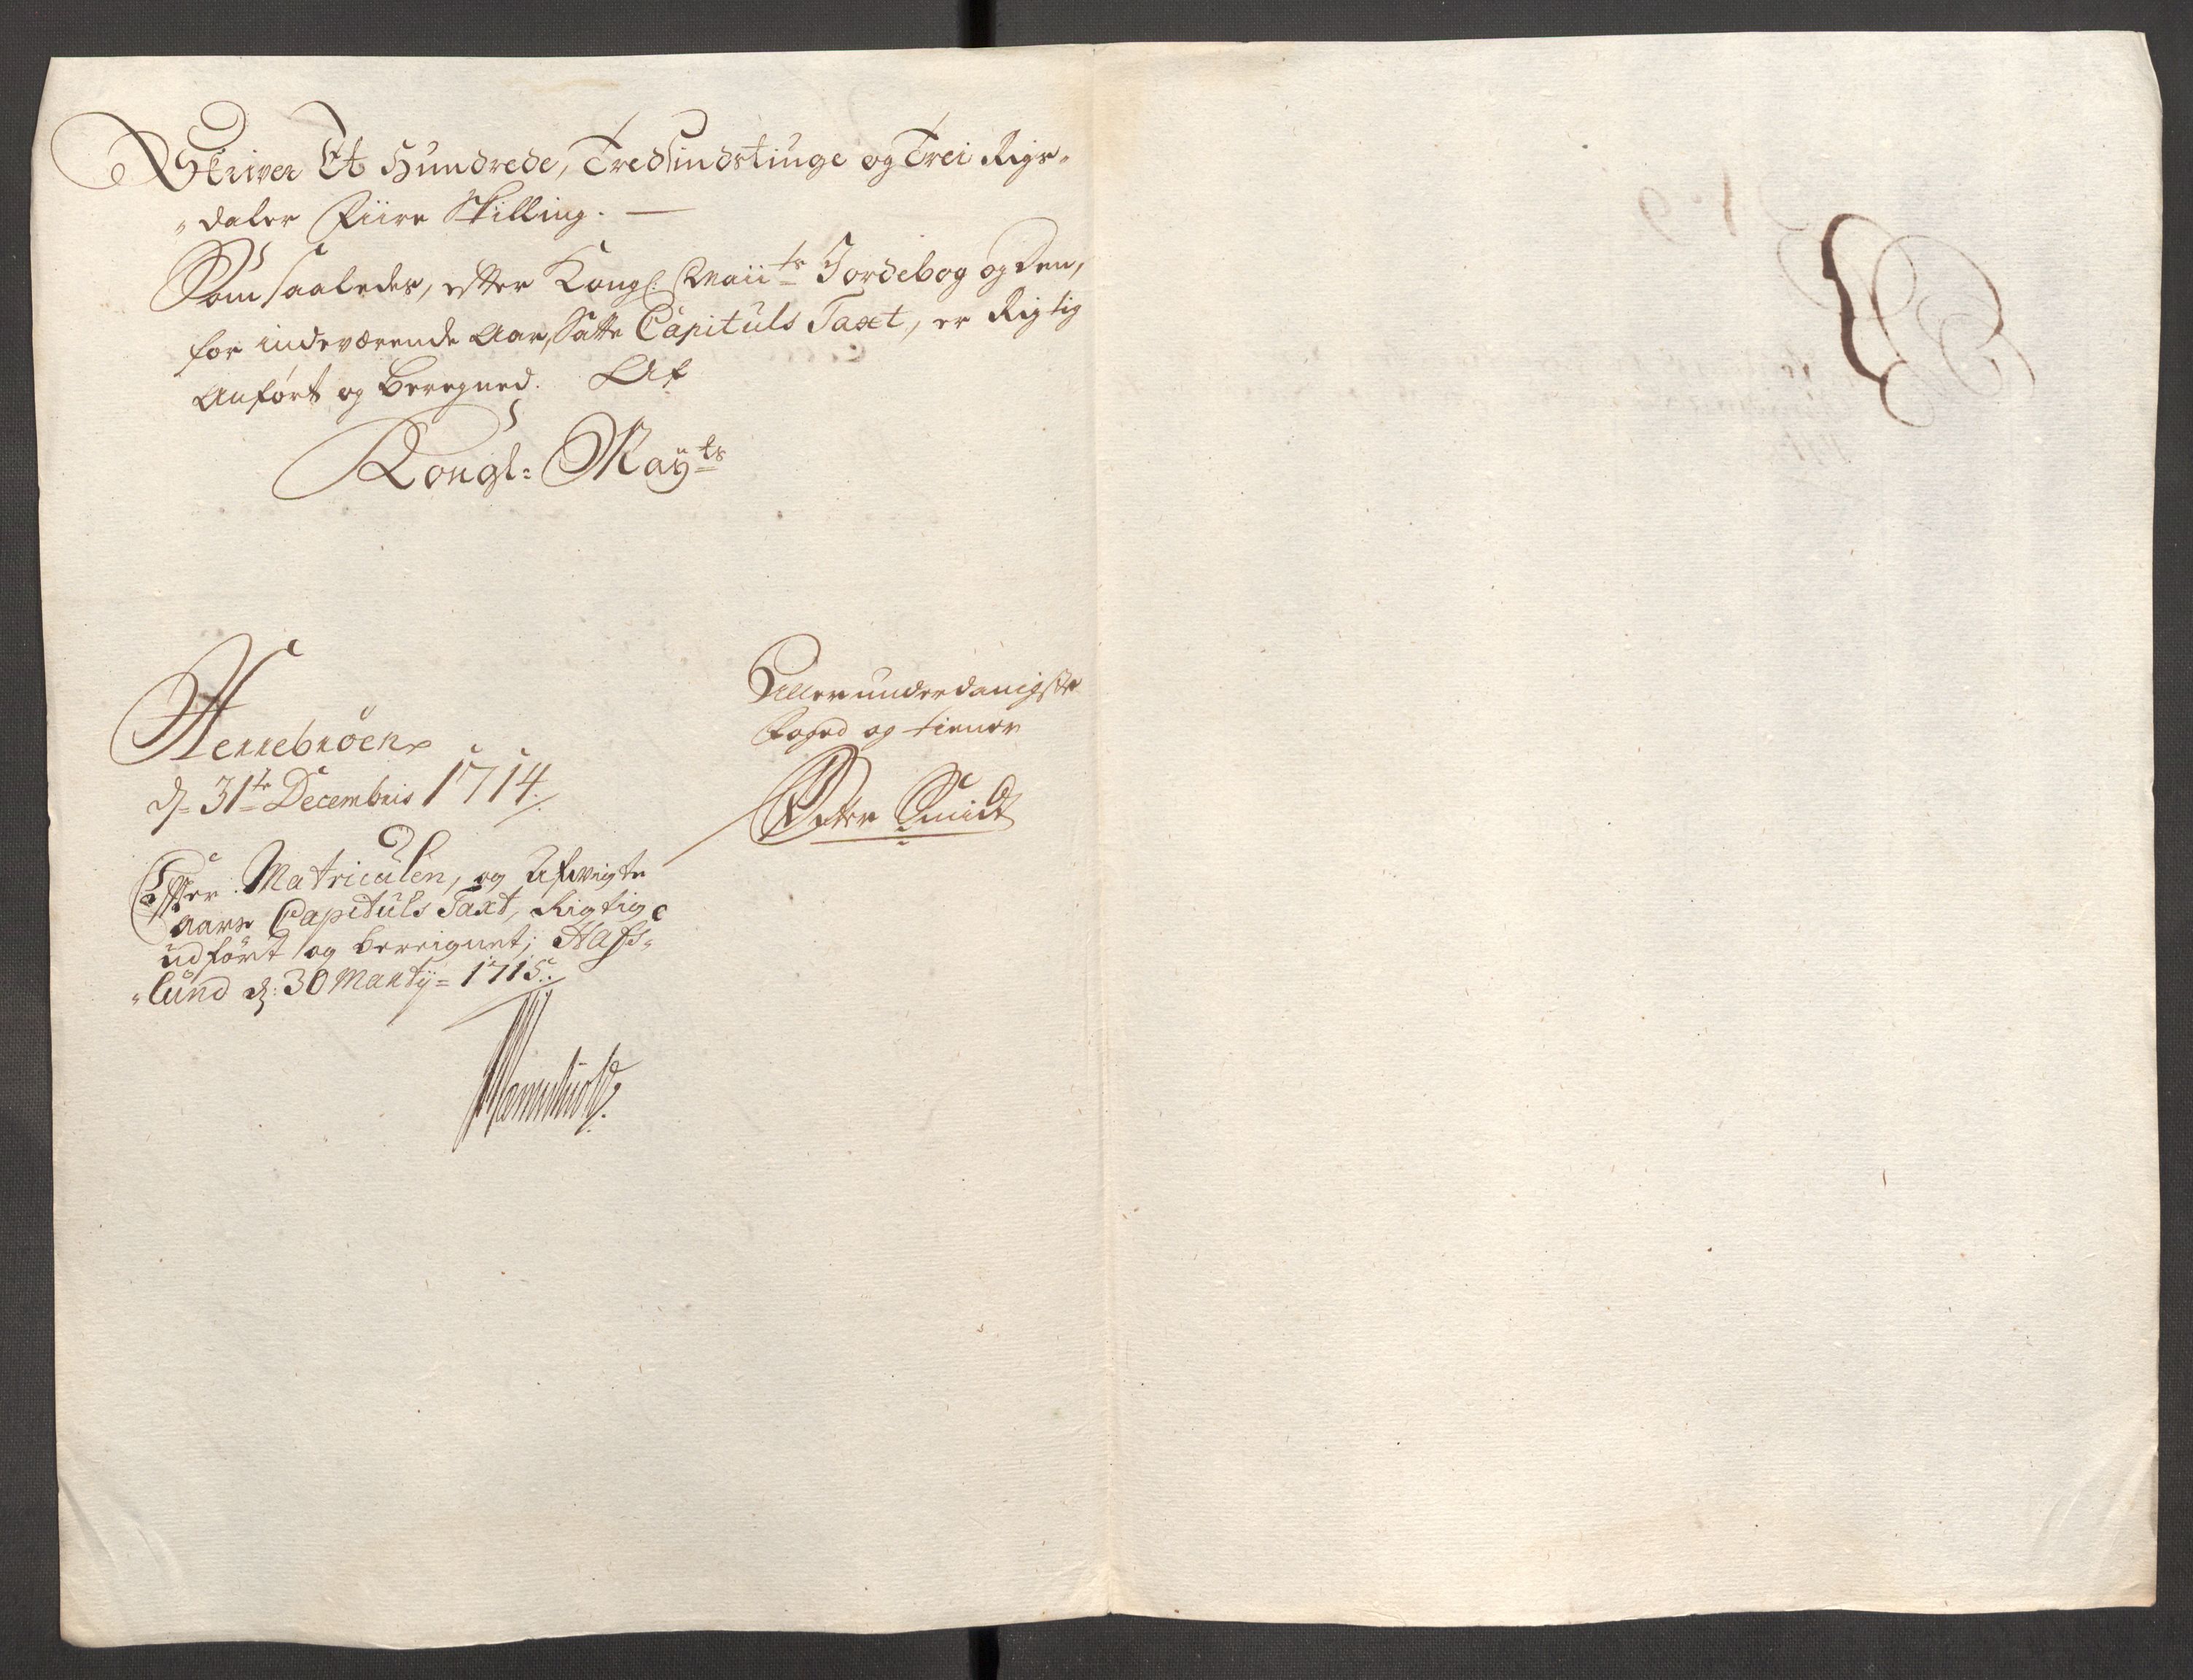 Skriver Et Hundrede, Tredsindstiuge og Trei Rigs-
"daler Fiire Skilling. —
Som saaledes, efter Kongl: Maiits Jordebog og den,
for indeværende Aar, Satte Capituls Taxt, er Rigtig
Anfört og Beregned. Af
Kongl: Mayts
Herrebröen
d. 31te Decembris 1714.
Allerunderdanigste
Foged og tiener
Peter Smidt
Efter Matriculen, og
Aars Capituls Taxt, Rigtig
udfört og bereignet; Hafs-
"lund d: 30 Martij = 1715.